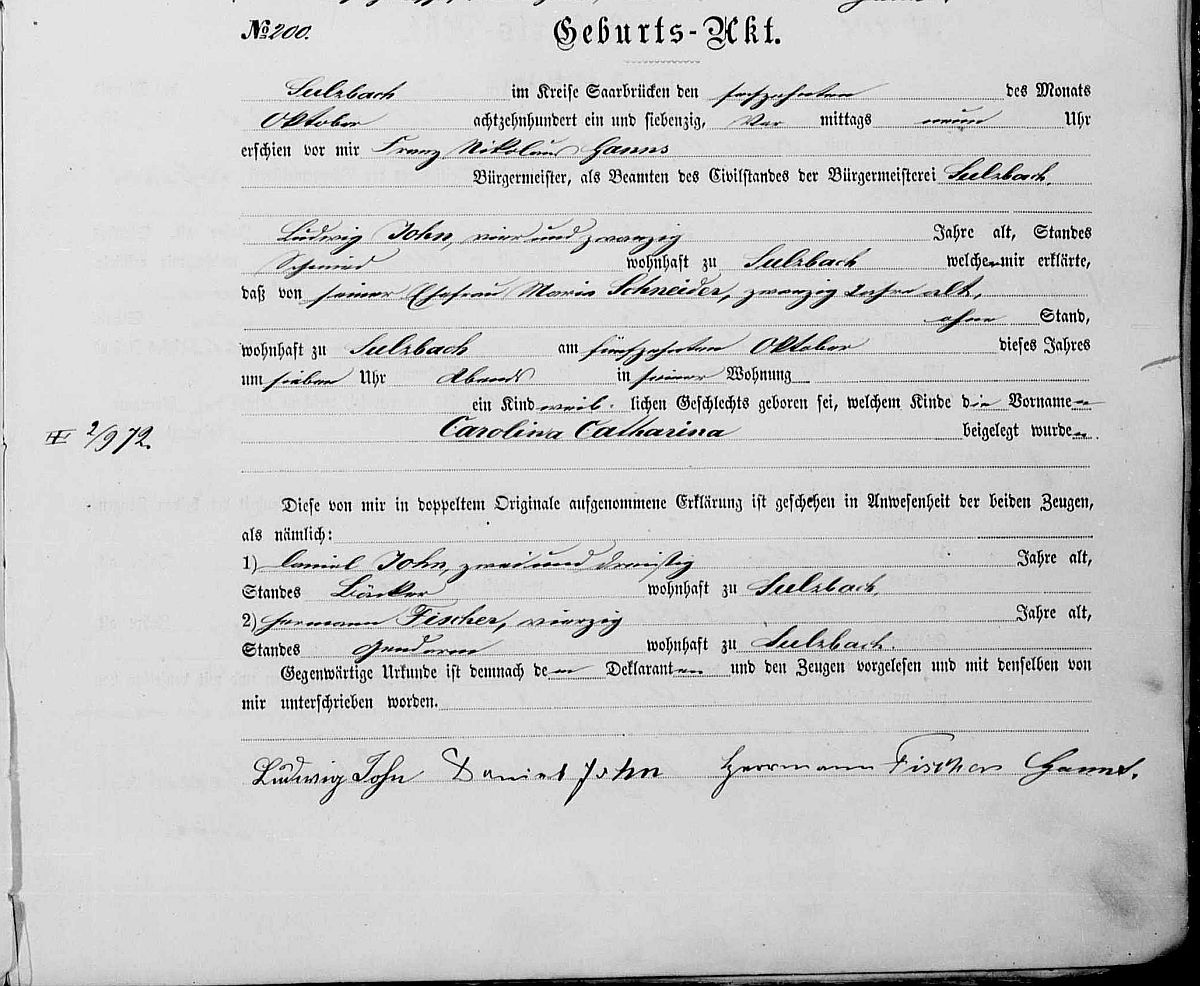 № 200.
Geburts-Akt.
Sulzbach im Kreise Saarbrücken den sechszehnten des Monats
Oktober achtzehnhundert ein und siebenzig, Vor mittags neun Uhr
erschien vor mir Franz Nikolaus Hanns
Bürgermeister, als Beamten des Civilstandes der Bürgermeisterei Sulzbach,
Ludwig John, vier und zwanzig Jahre alt, Standes
Schmied wohnhaft zu Sulzbach welcher mir erklärte,
daß von seiner Ehefrau Maria Schneider, zwanzig Jahre alt,
ohne Stand,
wohnhaft zu Sulzbach am fünfzehnten Oktober dieses Jahres
um sieben Uhr Abends in seiner Wohnung
ein Kind weib- lichen Geschlechts geboren sei, welchem Kinde die Vornamen
Carolina Catharina beigelegt wurden.
2/972.
Diese von mir in doppeltem Originale aufgenommene Erklärung ist geschehen in Anwesenheit der beiden Zeugen,
als nämlich:
1) Daniel John, zwei und dreißig Jahre alt,
Standes Bäcker wohnhaft zu Sulzbach,
2) Hermann Fischer, vierzig Jahre alt,
Standes Gendarm wohnhaft zu Sulzbach.
Gegenwärtige Urkunde ist demnach den Deklaranten und den Zeugen vorgelesen und mit denselben von
mir unterschrieben worden.
Ludwig John Daniel John Herrmann Fischer Hanns.